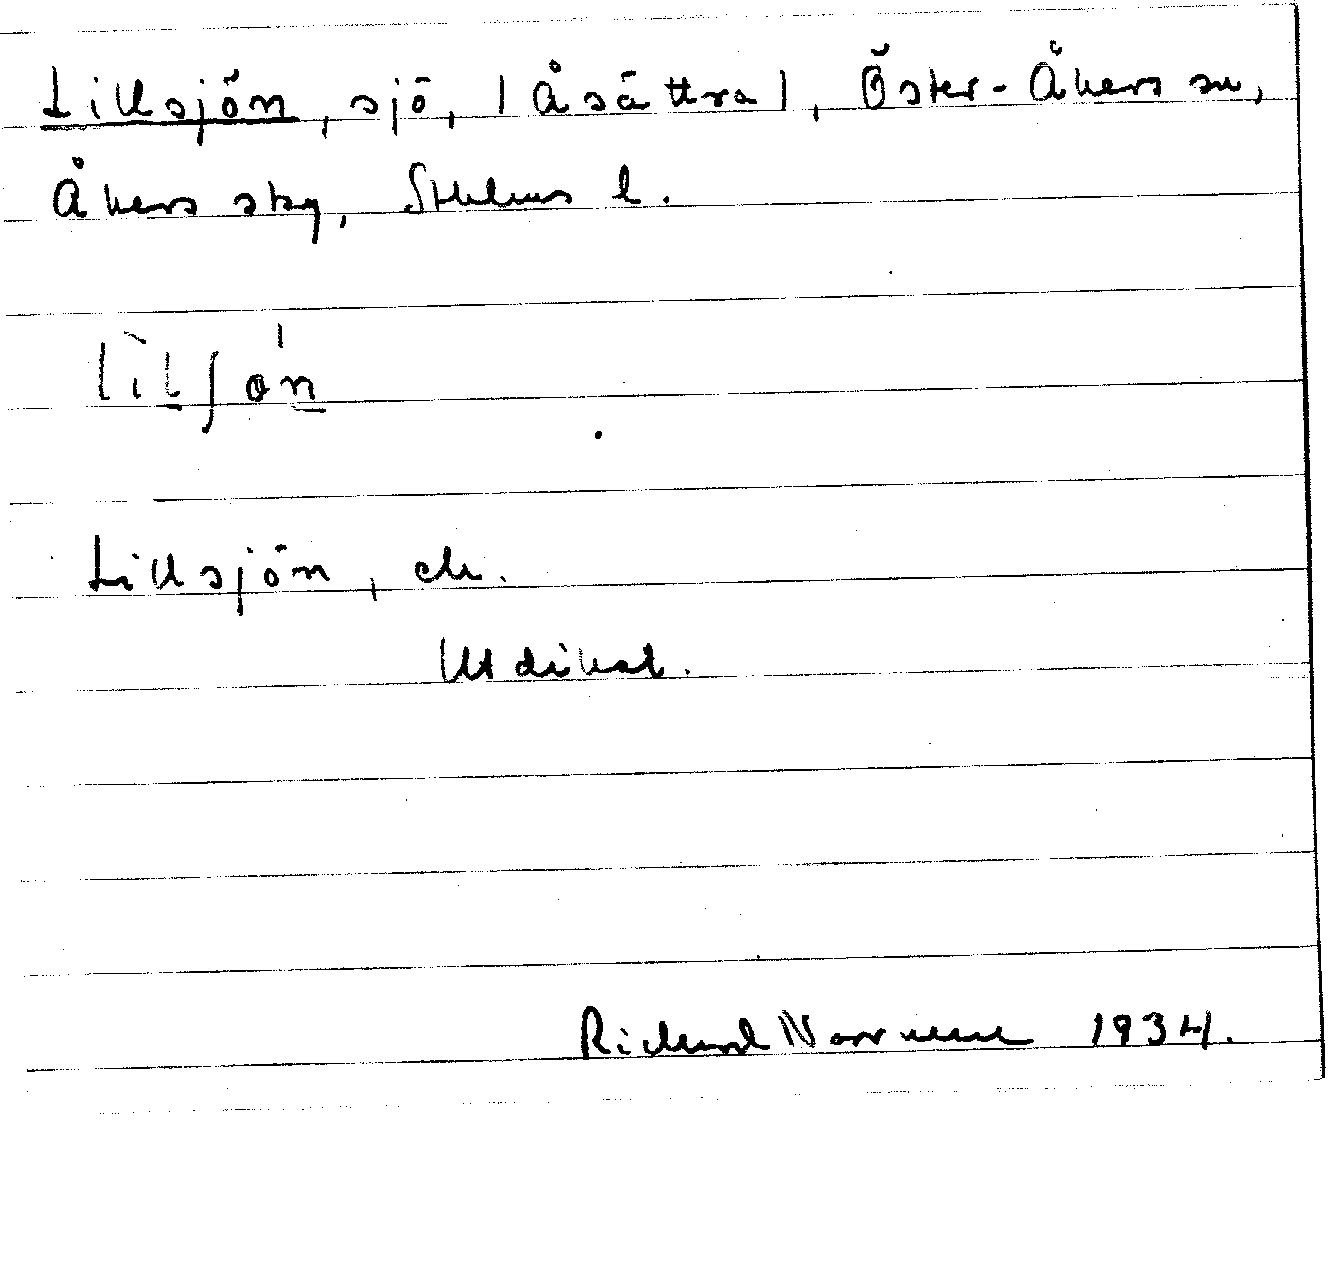 Lillsjön, sjö, (Åsättra), Öster-Åkers sn,
Åkers skg, Sthlms l.
Lillsjön, ek.
Utdikat.
Richard Norrman 1934.